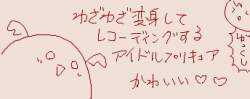 わざわざ変身して
レコーディングする
アイドルプリキュア
かわいい♡♡